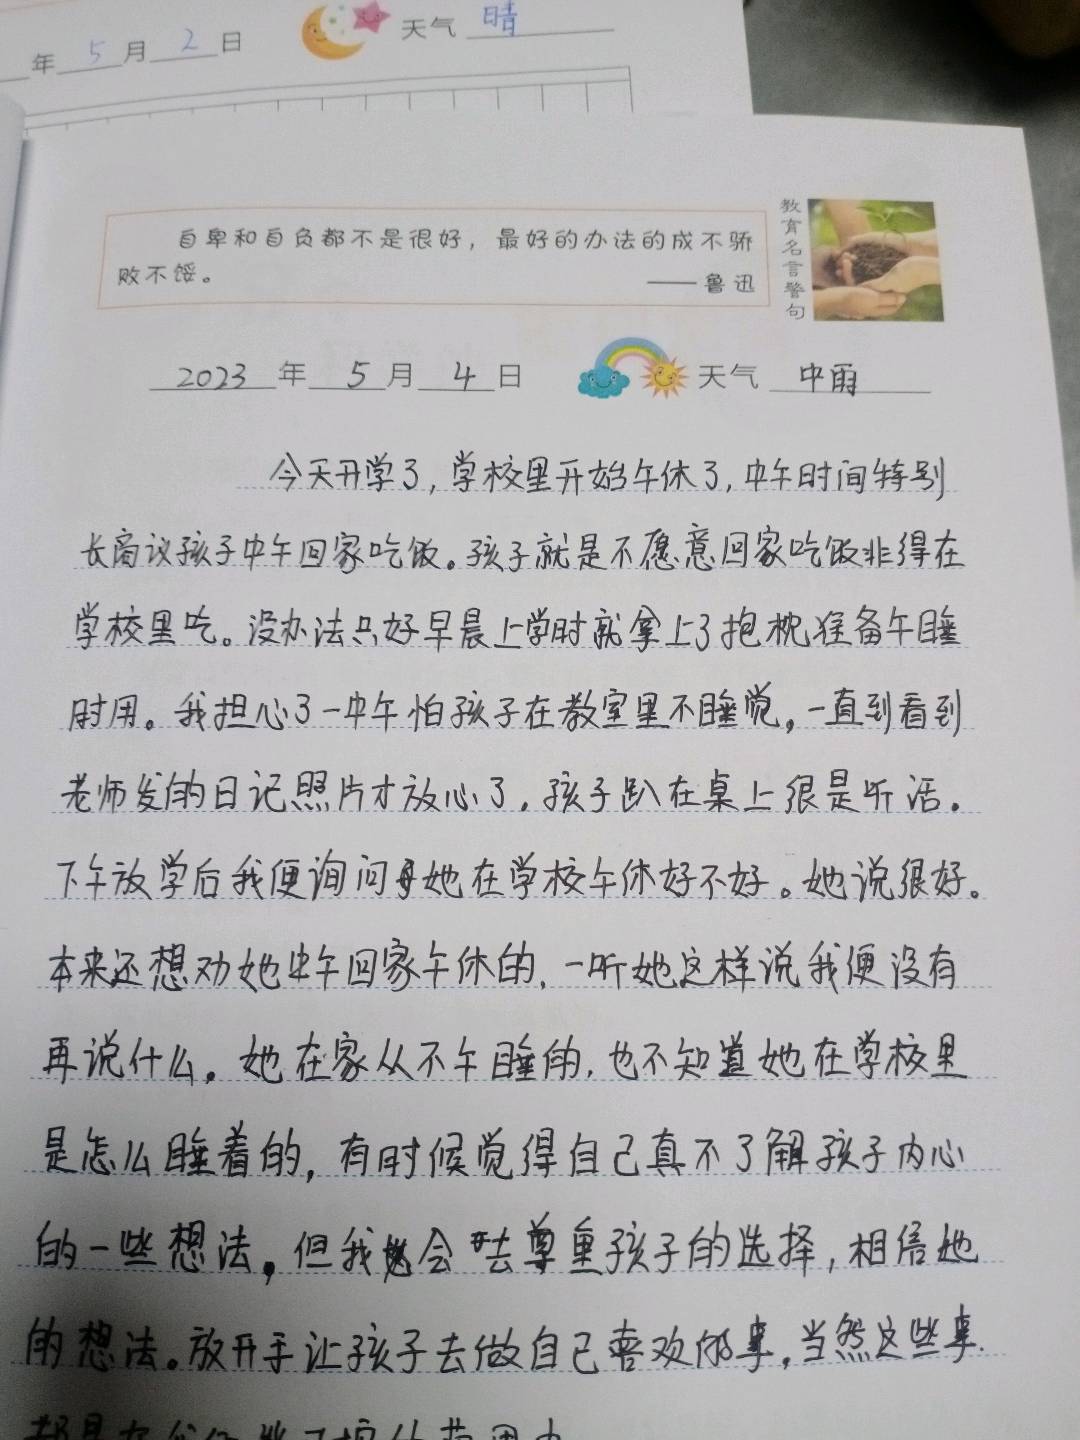 年 5 月 2 日 天气 晴
自卑和自负都不是很好，最好的办法的成不骄
败不馁。
——鲁迅
教育名言警句
2023 年 5 月 4 日 天气 中雨
今天开学了，学校里开始午休了，中午时间特别
长商议孩子中午回家吃饭。孩子就是不愿意回家吃饭非得在
学校里吃。没办法只好早晨上学时就拿上了抱枕准备午睡
时用。我担心了一中午怕孩子在教室里不睡觉，一直到看到
老师发的日记照片才放心了。孩子趴在桌上很是听话。
下午放学后我便询问她在学校午休好不好。她说很好。
本来还想劝她中午回家午休的，一听她这样说我便没有
再说什么。她在家从不午睡的，也不知道她在学校里
是怎么睡着的，有时候觉得自己真不了解孩子内心
的一些想法。但我会去尊重孩子的选择，相信她
的想法。放开手让孩子去做自己喜欢的事，当然这些事